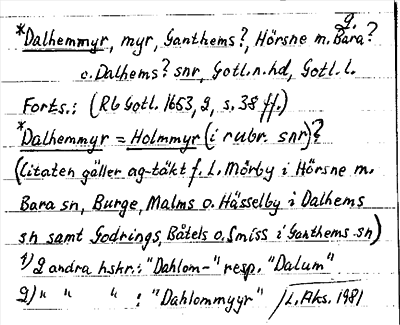 2.
*Dalhemmyr, myr, Ganthems?, Hörsne m. Bara?
o. Dalhems? snr, Gotl. n. hd, Gotl. l.
Forts.: (Rb Gotl. 1653, 2, s. 38 ff.)
*Dalhemmyr = Holmmyr (i rubr. snr)?
(Citaten gäller ag-täkt f. L. Mörby i Hörsne m.
Bara sn, Burge, Malms o. Hässelby i Dalhems
sn samt Godrings, Båtels o. Smiss i Ganthems sn)
1) 2 andra hskr.: "Dahlom-" resp. "Dalum"
2) " " " : "Dahlommyyr" /L. Aks. 1981